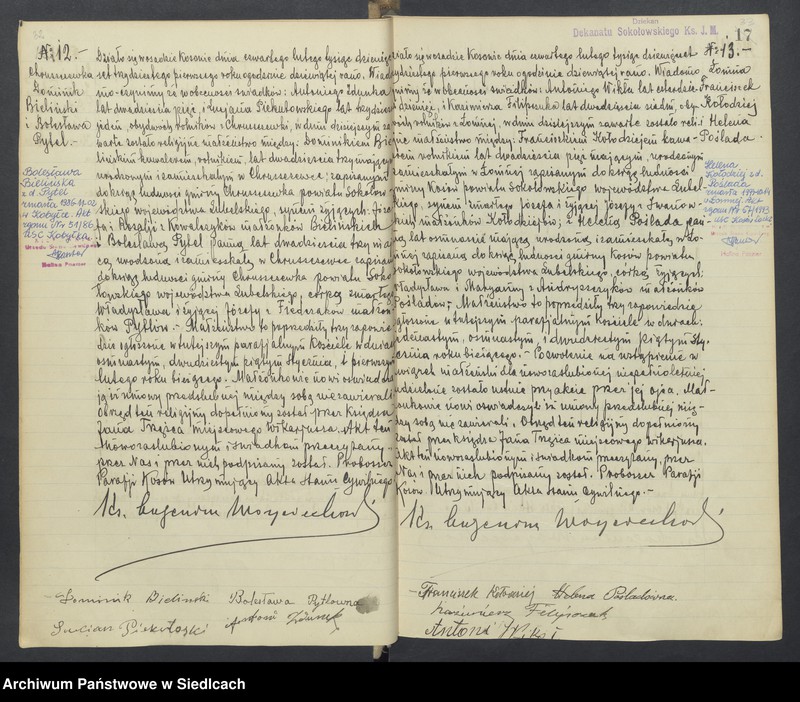 32
№ 12.-
Chruszczewka
Dominik
Bieliński
i Bolesława
Pytel.-
Bolesława
Bielińska
z d. Pytel
zmarła 1986.11.02
w Kobyłce. Akt
zgonu Nr 51/86
USC Kobyłka
Działo się we wsi Kosowie dnia czwartego lutego tysiąc dziewięć-
set trzydziestego pierwszego roku o godzinie dziewiątej rano. Wiado-
mo czynimy że w obecności świadków: Antoniego Zdunka
lat dwadzieścia pięć, i Juljana Piekutowskiego lat trzydzieści
jeden, obydwóch rolników z Chruszczewki, w dniu dzisiejszym za-
warte zostało religijne małżeństwo między: Dominikiem Bie-
lińskim kawalerem, rolnikiem, lat dwadzieścia trzy mającym
urodzonym i zamieszkałym w Chruszczewce; zapisanym
do ksiąg ludności gminy Chruszczewka powiatu Sokołow-
skiego województwa Lubelskiego, synem żyjących: Józe-
fa i Rozalji z Kowalczyków małżonków Bielińskich
i Bolesławą Pytel panną lat dwadzieścia trzy mają-
cą urodzoną i zamieszkałą w Chruszczewce zapisaną
do ksiąg ludności gminy Chruszczewka powiatu Soko-
łowskiego województwa Lubelskiego, córką zmarłego
Władysława i żyjącej Józefy z Fiedrzaków małżon-
ków Pytlów.- Małżeństwo to poprzedziły trzy zapowie-
dzie ogłoszone w tutejszym parafjalnym Kościele w dniach
osiemnastym, dwudziestym piątym stycznia, i pierwszym
lutego roku bieżącego. Małżonkowie nowi oświadcza-
ją iż umowy przedślubnej między sobą nie zawierali.
Obrzęd ten religijny dopełniony został przez Księdza
Jana Trzęica miejscowego Wikarjusza. Akt ten
nowozaślubionym i świadkom przeczytany,
przez Nas i przez nich podpisany został. Proboszcz
Parafji Kosów Utrzymujący Akta Stanu Cywilnego
Ks. Eugenjusz Woyciechowski
Dominik Bieliński Bolesława Pytlówna
Julian Piekutoski Antoni Zdunek
Dziekan
Dekanatu Sokołowskiego Ks. J. M.
33
17
№ 13.-
Łomna
Franciszek
Kołodziej
i Helena
Poślada
Helena
Kołodziej z d.
Poślada
USC Kosów Lacki
Działo się we wsi Kosowie dnia czwartego lutego tysiąc dziewięćset
trzydziestego pierwszego roku o godzinie dziewiątej rano. Wiadomo
czynimy że w obecności świadków: Antoniego Wikła lat czterdzieści
dziewięć, i Kazimierza Filipczuka lat dwadzieścia siedm, oby-
dwóch rolników z Łomny, w dniu dzisiejszym zawarte zostało reli-
gijne małżeństwo między: Franciszkiem Kołodziejem kawa-
lerem rolnikiem lat dwadzieścia pięć mającym, urodzonym
i zamieszkałym w Łomnej zapisanym do ksiąg ludności
gminy Kosów powiatu Sokołowskiego województwa Lubel-
skiego, synem: zmarłego Józefa i żyjącej Józefy z Iwanow-
skich małżonków Kołodziejów; i Heleną Poślada pan-
ną lat osiemnaście mającą urodzoną i zamieszkałą w Ło-
mnej zapisaną do ksiąg ludności gminy Kosów powiatu
Sokołowskiego województwa Lubelskiego, córką żyjących:
Władysława i Marjanny z Andryszczyków małżonków
Pośladów; Małżeństwo to poprzedziły trzy zapowiedzie
ogłoszone w tutejszym parafjalnym Kościele w dniach:
jedenastym, osiemnastym, i dwudziestym piątym sty-
cznia roku bieżącego.- Pozwolenie na wstąpienie w
związek małżeński dla nowozaślubionej niepełnoletniej
udzielone zostało ustnie przy akcie przez jej ojca. Mał-
żonkowie nowi oświadczyli iż umowy przedślubnej mię-
dzy sobą nie zawierali. Obrzęd ten religijny dopełniony
został przez księdza Jana Trzęica miejscowego Wikarjusza.
Akt ten nowozaślubionym i świadkom przeczytany, przez
Nas i przez nich podpisany został. Proboszcz Parafji
Kosów Utrzymujący Akta Stanu Cywilnego.-
Ks. Eugenjusz Woyciechowski
Franciszek Kołodziej Helena Pośladówna.
Kazimierz Filipczuk
Antoni Wikł
Archiwum Państwowe w Siedlcach